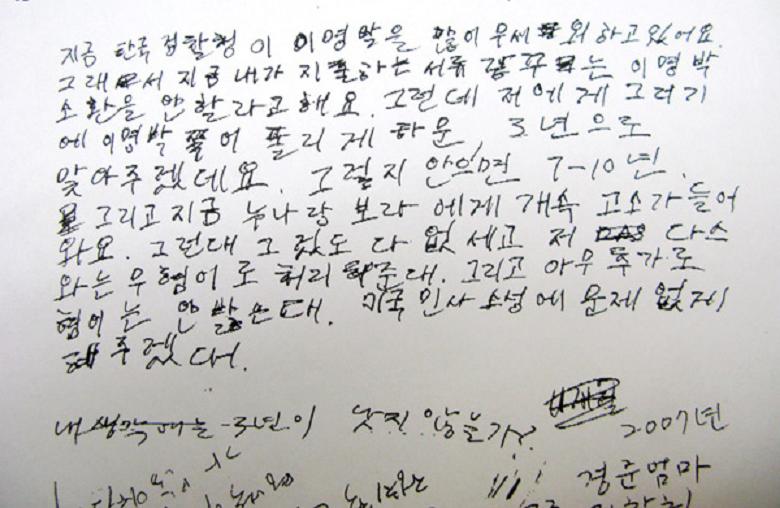 지금 한국 검찰청 이 이명박을 많이 무서워 하고있어요.
그래서 지금 내가 지출하는 서류 는 이명박
소환을 안할라고해요. 그런데 저에게 그러기
에 이명박 풀어 폴리게 하문 3년으로
맞아주겠데요. 그렇지 안으면 7-10년.
그리고지금 누나랑 보라에게 개속 고소가들어
와요. 그런대 그것도 다 없세고 저 다스
와는 무협이로 처리 준대. 그리고 아무 추가로
협이는 안 받는대. 미국 민사소송에 문제 없게
해주겠대.
내 생각에는 3년이 낫지 않을가?
2007년
경준엄마